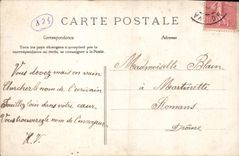 CARTE POSTALE
Correspondance
Adresse
Tous les pays étrangers n'acceptent pas la
correspondance au recto, se renseigner à la Poste.
Vous devez mais en vain
Chercher le nom de l'écrivain
Fouillez loin dans votre cœur
Vous trouverez le nom de l'envoyeur
Mademoiselle Blain
à Martinette
Romans
Drôme